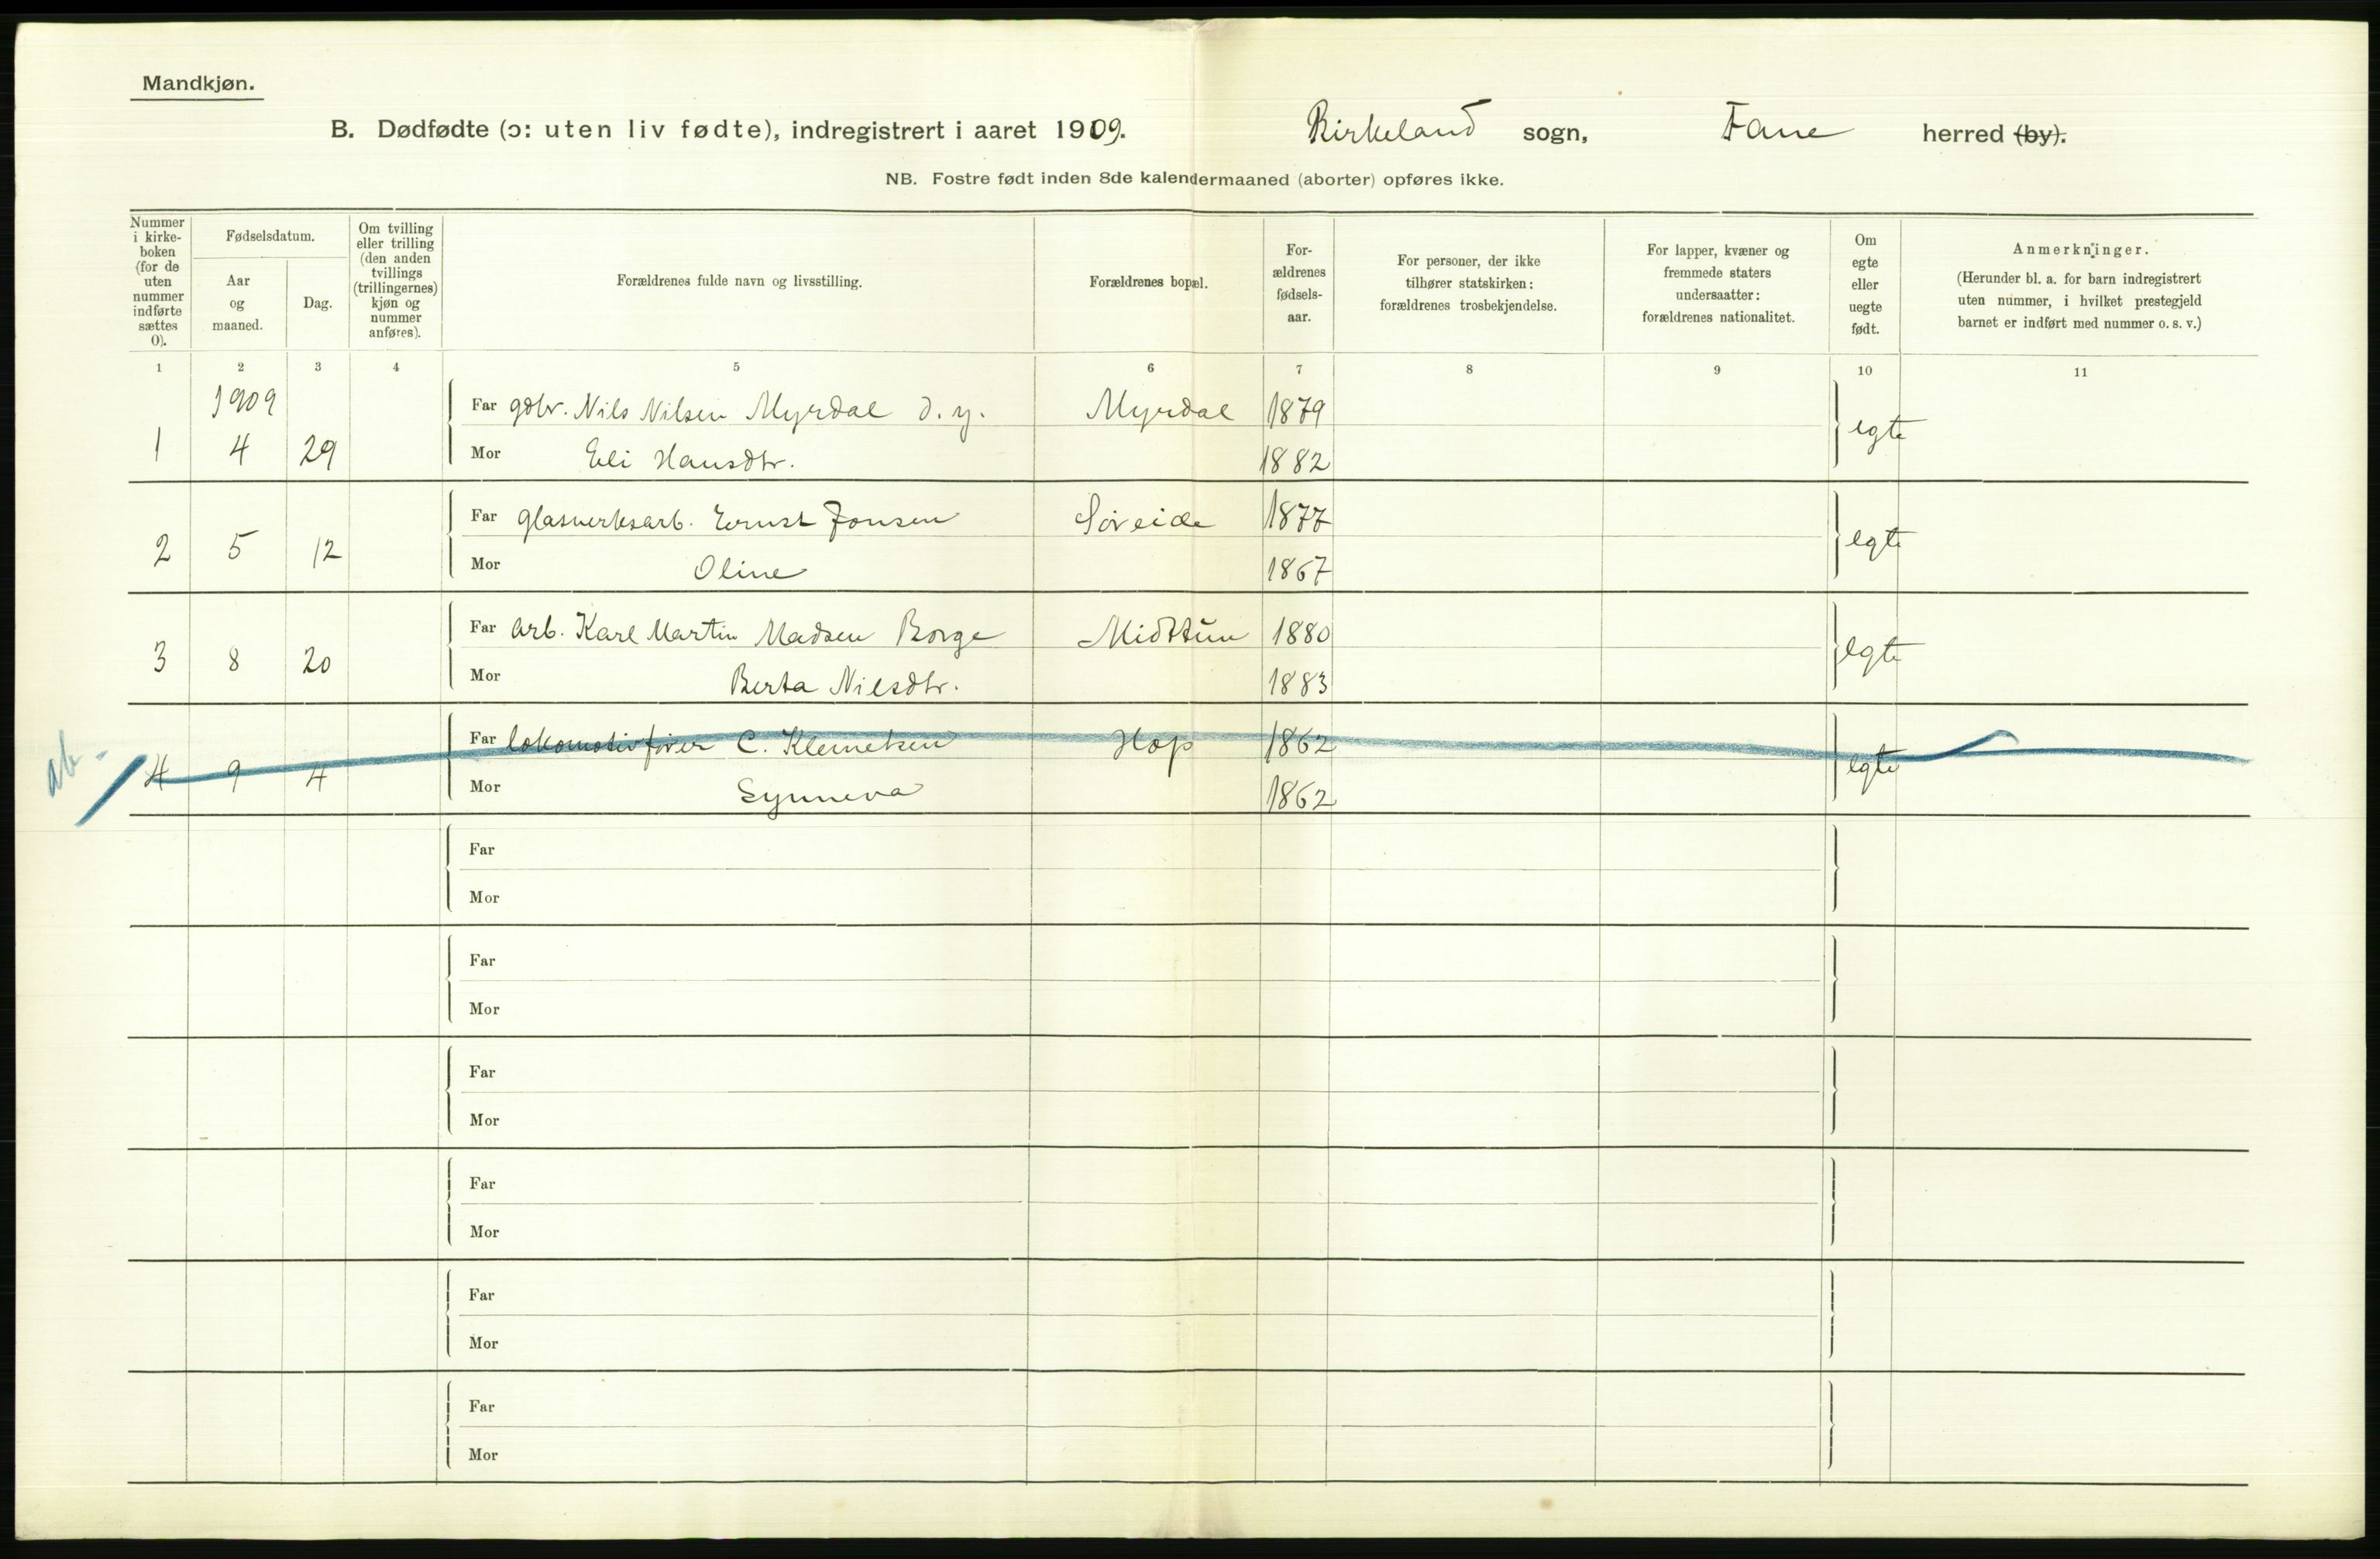 Mandkjøn.
B. Dødfødte (ɔ: uten liv fødte), indregistrert i aaret 1909. Birkeland sogn, Fane herred (by).
NB. Fostre født inden 8de kalendermaaned (aborter) opføres ikke.
Nummer i kirke-boken (for de uten nummer indførte sættes 0).
Fødselsdatum.
Aar og maaned.
Dag.
Om tvilling eller trilling (den anden tvillings (trillingernes) kjøn og nummer anføres).
Forældrenes fulde navn og livsstilling.
Forældrenes bopæl.
For-ældrenes fødsels-aar.
For personer, der ikke tilhører statskirken: forældrenes trosbekjendelse.
For lapper, kvæner og fremmede staters undersaatter: forældrenes nationalitet.
Om egte eller uegte født.
Anmerkninger.
(Herunder bl. a. for barn indregistrert uten nummer, i hvilket prestegjeld barnet er indført med nummer o. s. v.)
1 2 3 4 5 6 7 8 9 10 11
1909
Far gdbr. Nils Nilsen Myrdal d. y. Myrdal 1879
1 4 29 egte
Mor Eli Hansdtr. 1882
Far glasverksarb. Ernst Jonsen Søreide 1877
2 5 12 egte
Mor Oline 1867
Far arb. Karl Martin Madsen Borge Midttun 1880
3 8 20 egte
Mor Berta Nilsdtr. 1883
Far lokomotivfører C. Klemetsen Hop 1862
ab. 4 9 4 egte
Mor Synneva 1862
Far
Mor
Far
Mor
Far
Mor
Far
Mor
Far
Mor
Far
Mor